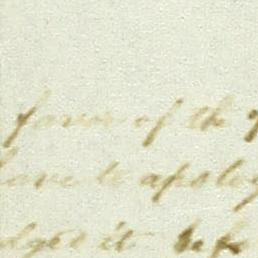 favor of the
have to apolog
dge it bef